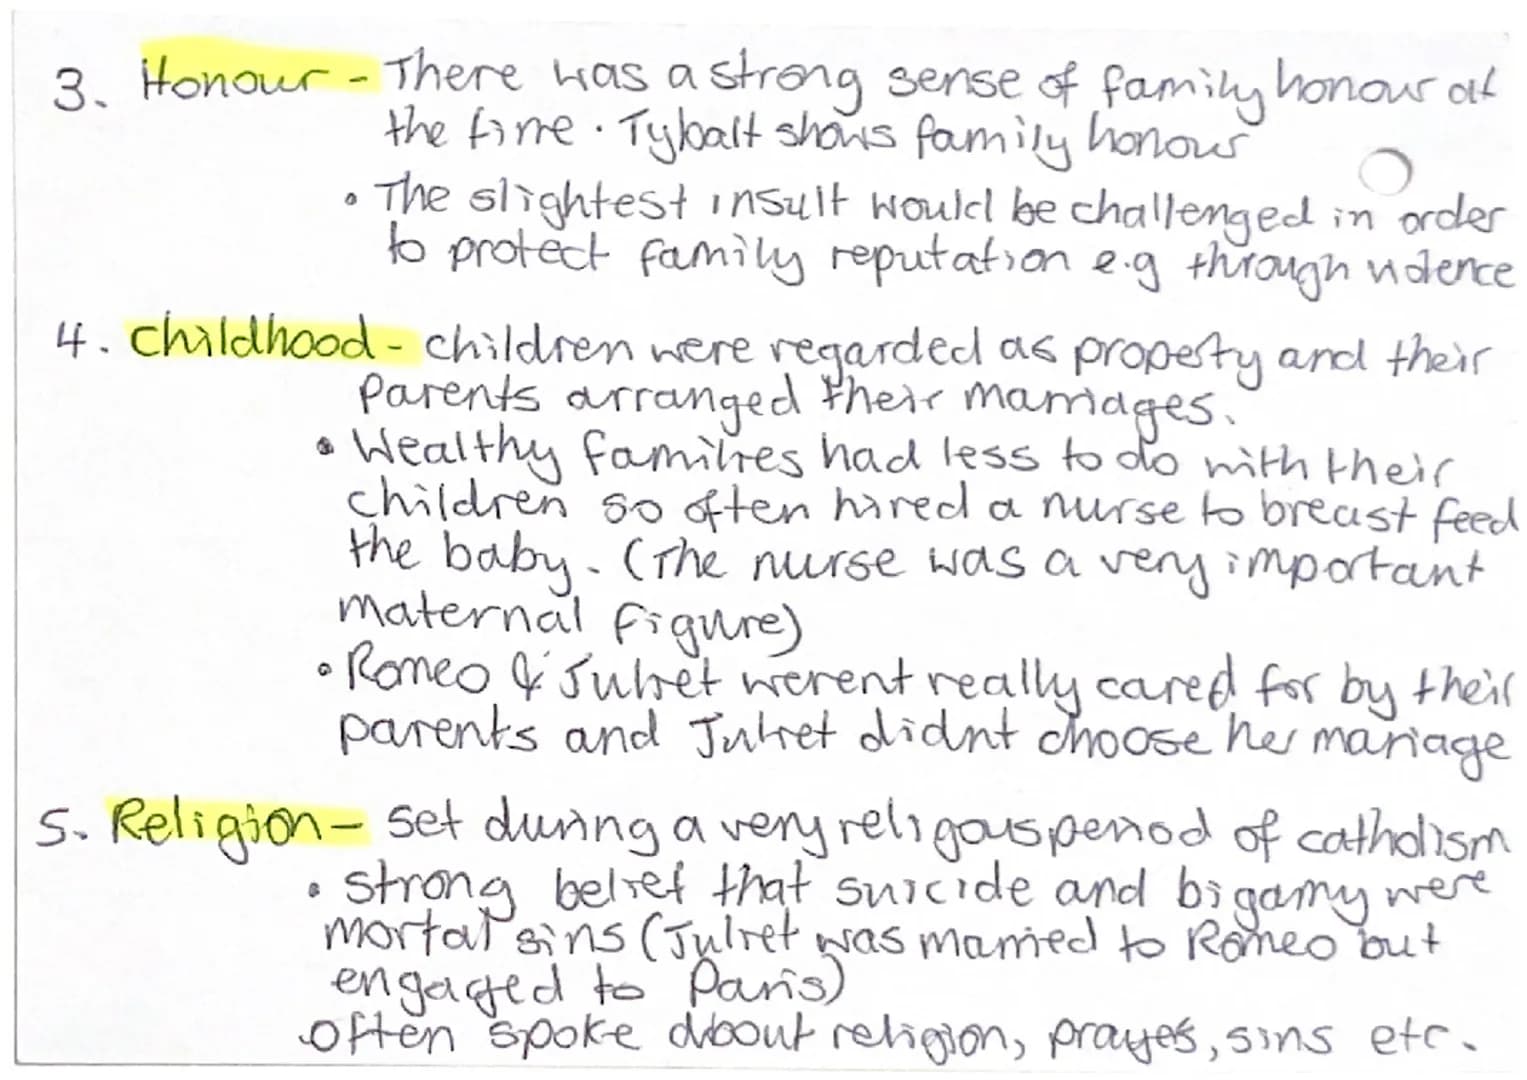 3. Honour - There was a strong sense of family honour at
the time. Tybalt shows family honour
• The slightest insult would be challenged in order
to protect family reputation e.g through violence
4. Childhood - children were regarded as property and their
parents arranged their marriages.
• Wealthy families had less to do with their
children so often hired a nurse to breast feed
the baby. (The nurse was a very important
maternal figure)
• Romeo & Juliet werent really cared for by their
parents and Juliet didnt choose her marriage
5. Religion - set during a very religous period of catholism
• strong belief that suicide and bigamy were
mortal sins (Juliet was married to Romeo but
engaged to Paris)
• often spoke about religion, prayers, sins etc.